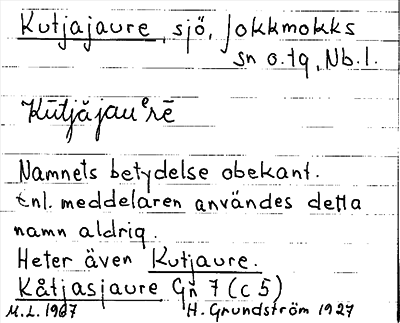 Kutjajaure, sjö, Jokkmokks
sn o. tg, Nb. l.
Kūtjăjauᵉrē
Namnets betydelse obekant.
Enl. meddelaren användes detta
namn aldrig.
Heter även Kutjaure.
Kåtjasjaure Gñ 7 (c 5)
M.L. 1967 H. Grundström 1927